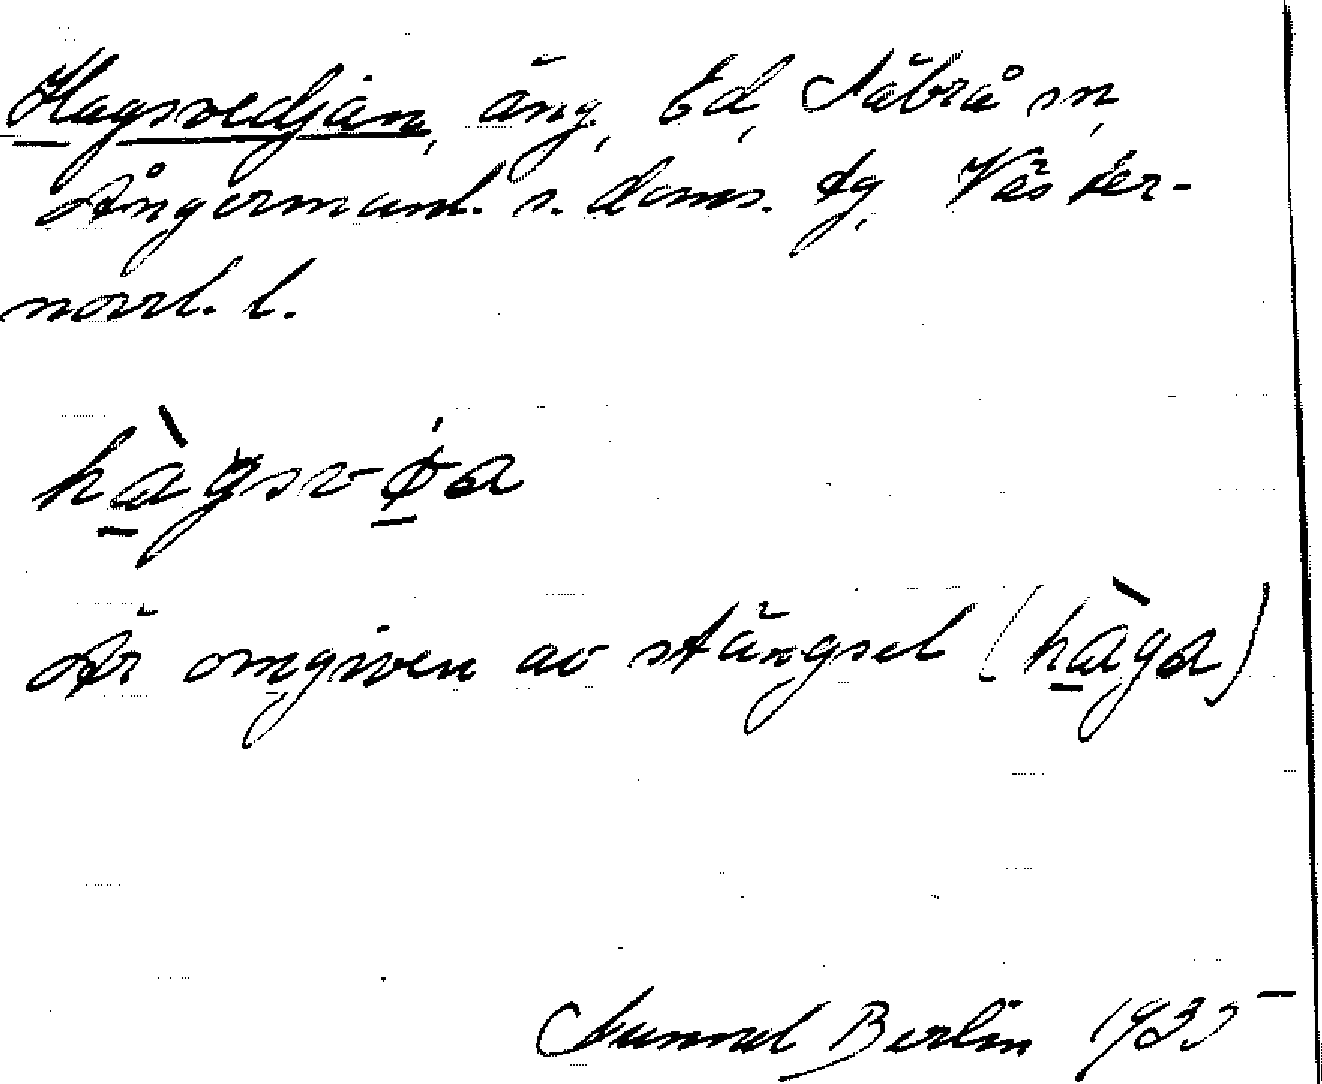 Hagsvedjan, äng, Ed, Säbrå sn,
Ångermanl. s. doms. tg. Väster-
norrl. l.
hàgsvǿa
Är omgiven av stängsel (hàga)
Gunnel Berlin 1935